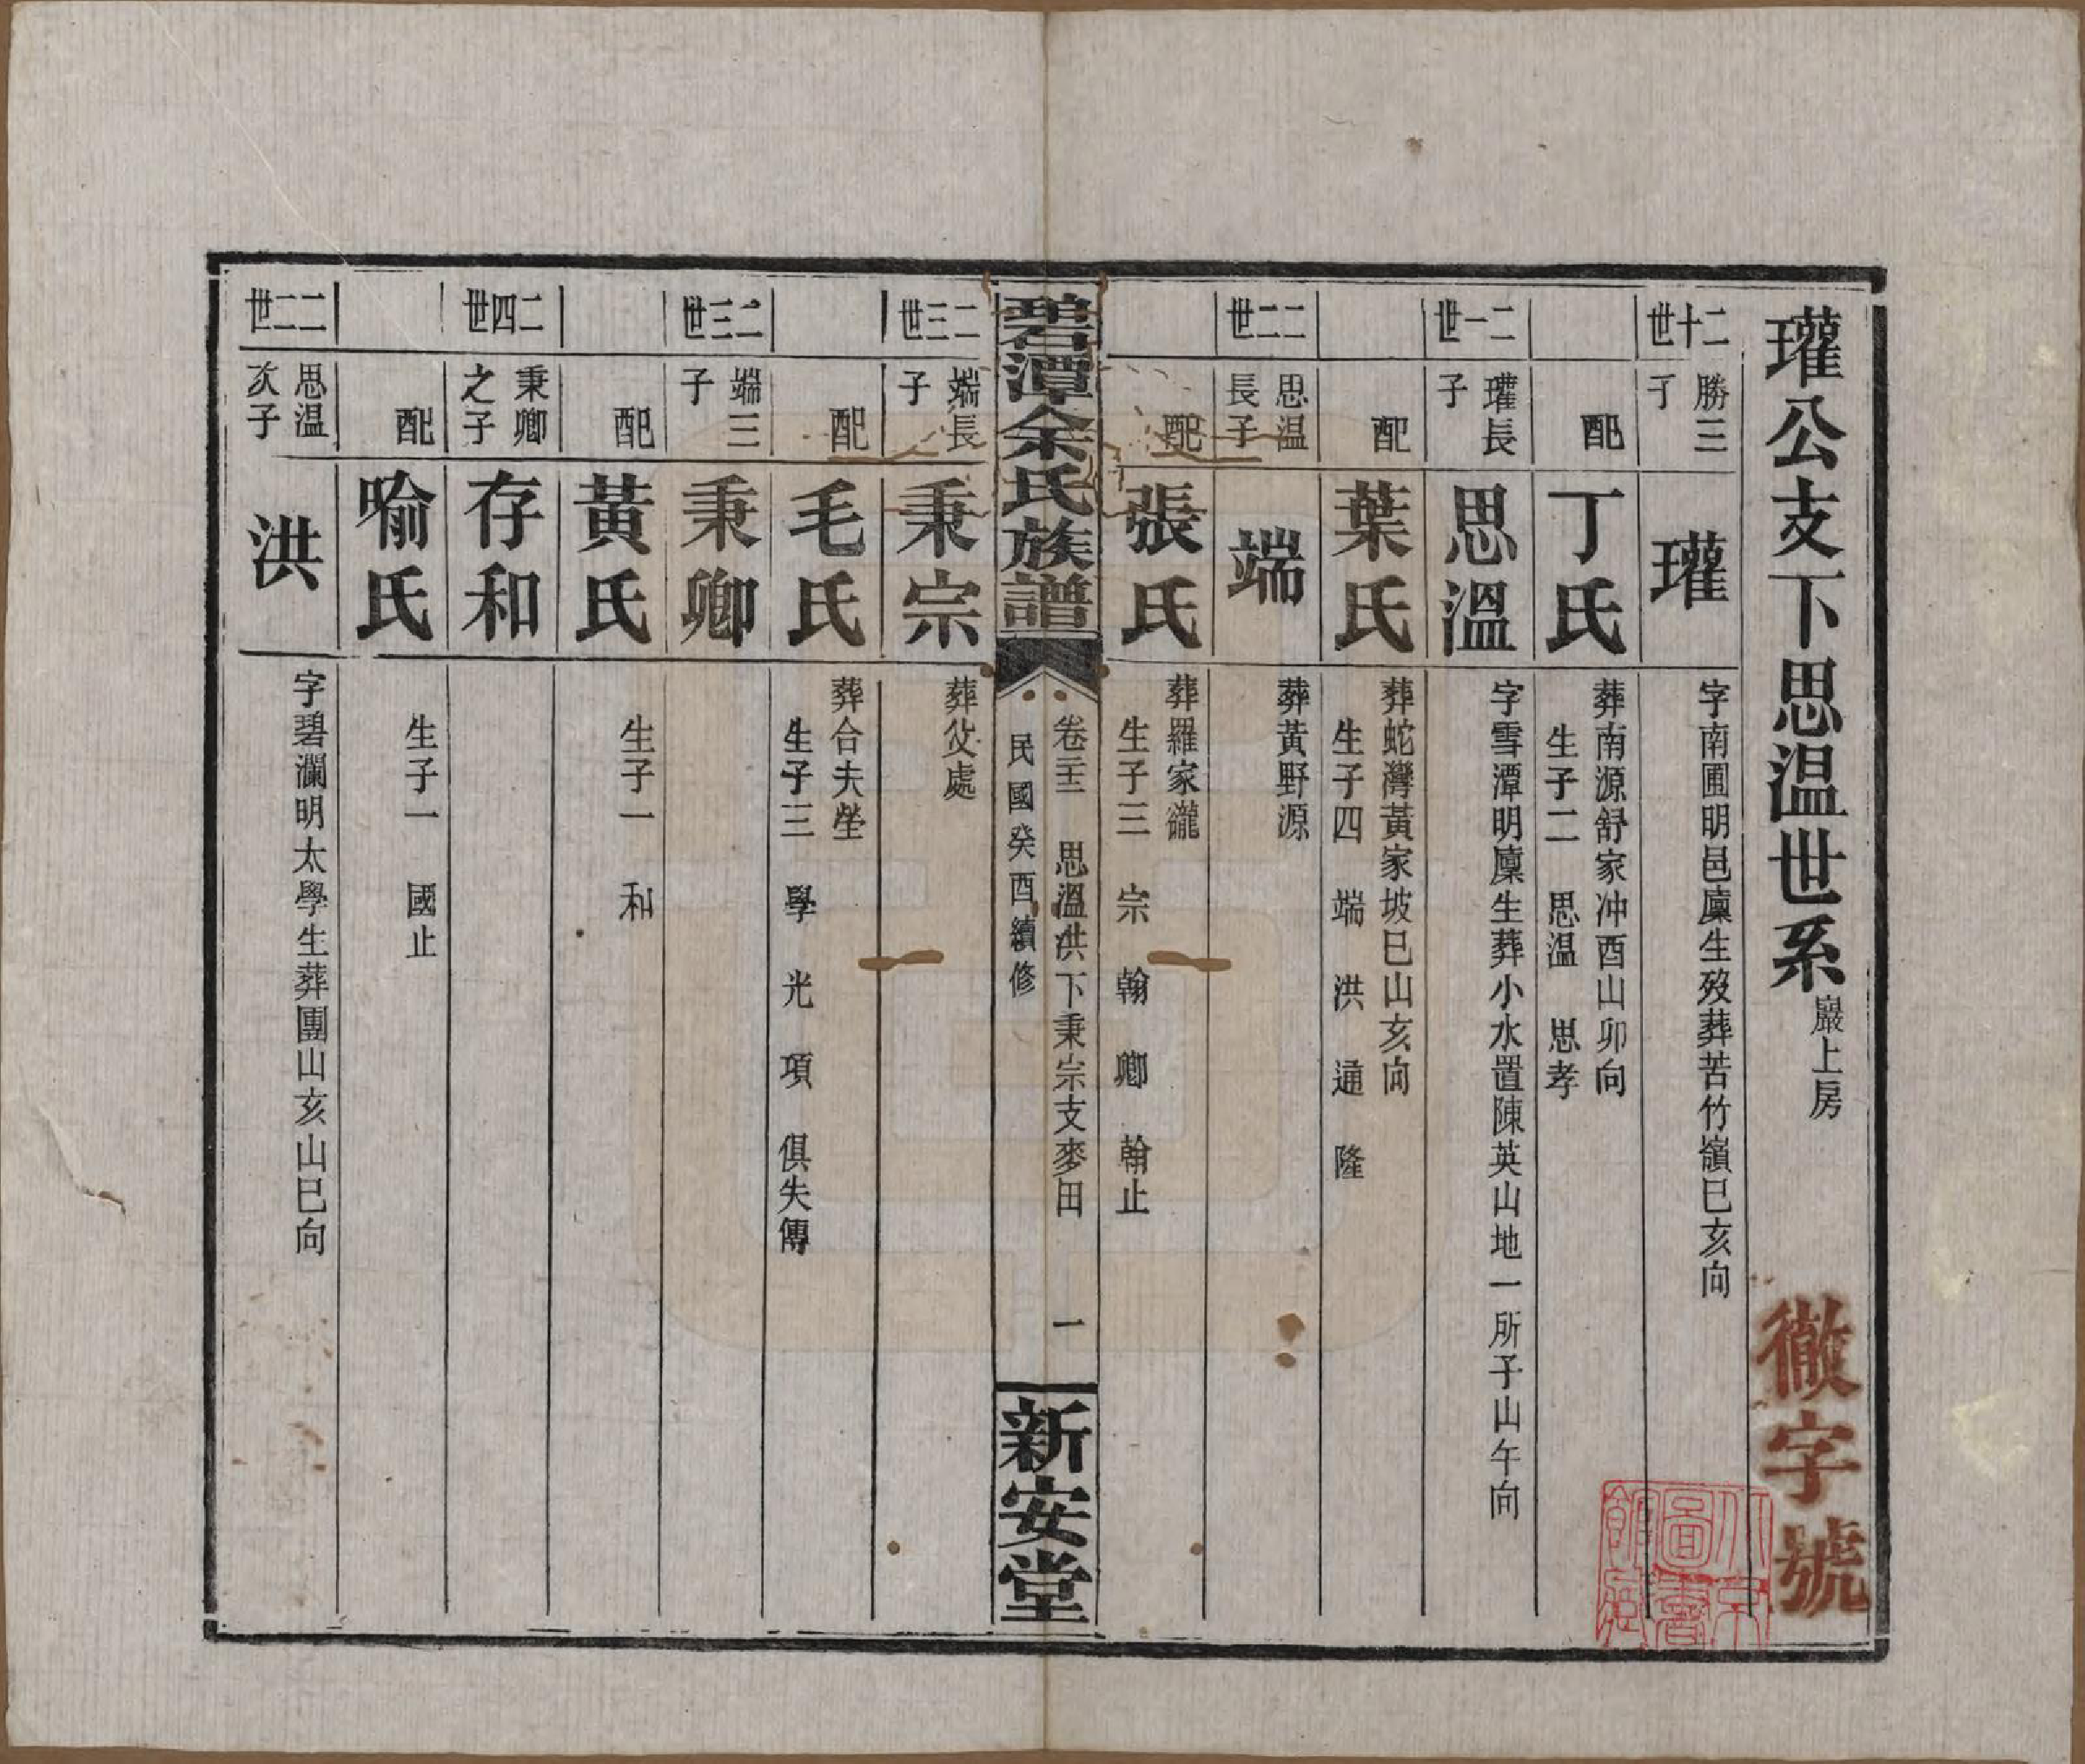 瓘公支下思温世系巖上房
徹字號
二十世
勝三子
瓘
字南圃明邑廩生歿葬苦竹嶺巳亥向
配
丁氏
葬南源舒家冲酉山卯向
生子二 思温 思孝
二一世
瓘長子
思溫
字雪潭明廩生葬小水置陳英山地一所子山午向
配
葉氏
葬蛇灣黃家坡巳山亥向
生子四 端 洪 通 隆
二二世
思温長子
端
葬黃野源
配
張氏
葬羅家
生子三 宗 翰 卿 翰止
碧潭余氏族譜
卷三 思溫洪下秉宗支麥田 一
民國癸酉續修
新安堂
二三世
端長子
秉宗
葬父處
配
毛氏
葬合夫塋
生子三 學 光 項 俱失傳
二三世
端三子
秉卿
配
黃氏
生子一 和
二四世
秉卿之子
存和
配
喻氏
生子一 國止
二二世
思温次子
洪
字碧瀾明太學生葬團山亥山巳向